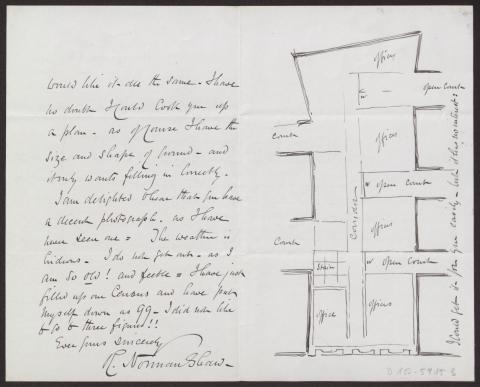 would like it all the same. I have
no doubt I could Cook you up
a plan - as of Course I have the
size and shape of ground - and
it only wants filling in Correctly.
I am delighted to hear that you have
a decent photograph. as I have
never seen one = The weather is
hideous. I do not get out - as I
am so old! and feeble = I have just
filled up our Census and have put
myself down as 99 - I did not like
to go to three figures!!
Ever yours sincerely
R. Norman Shaw -
offices
open Court
Court
offices
open Court
Corridor
offices
Court
Stairs
open Court
office
offices
I could get it for you easily - but it has no interest =
D 152-5915 3